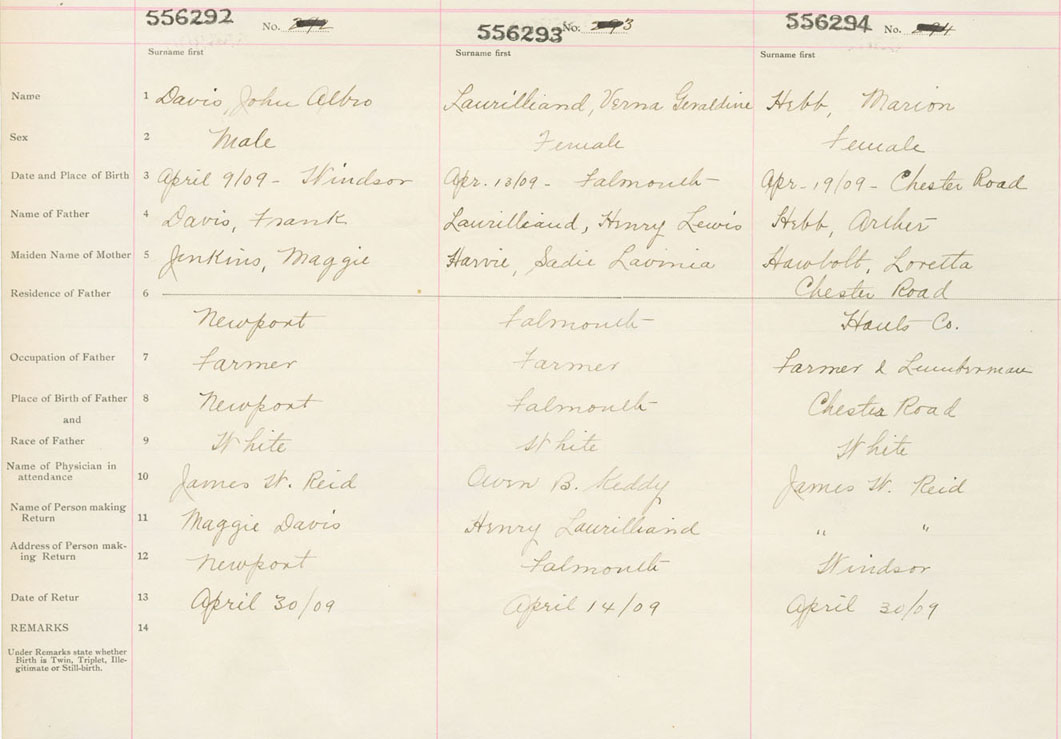 556292 No. 292 556293 No. 293 556294 No. 294
Surname first Surname first Surname first
Name 1 Davis, John Albro Laurilliand, Verna Geraldine Hebb, Marion
Sex 2 Male Female Female
Date and Place of Birth 3 April 9/09 - Windsor Apr. 13/09 - Falmouth Apr - 19/09 - Chester Road
Name of Father 4 Davis, Frank Laurilliand, Henry Lewis Hebb, Archer
Maiden Name of Mother 5 Jenkins, Maggie Harvie, Sadie Lavinia Hawbolt, Loretta
Residence of Father 6 Chester Road
Newport Falmouth Hants Co.
Occupation of Father 7 Farmer Farmer Farmer & Lumberman
Place of Birth of Father 8 Newport Falmouth Chester Road
and
Race of Father 9 White White White
Name of Physician in
attendance 10 James W. Reid Owen B. Keddy James W. Reid
Name of Person making
Return 11 Maggie Davis Henry Laurilliand " "
Address of Person mak-
ing Return 12 Newport Falmouth Windsor
Date of Retur 13 April 30/09 April 14/09 April 30/09
REMARKS 14
Under Remarks state whether
Birth is Twin, Triplet, Ille-
gitimate or Still-birth.